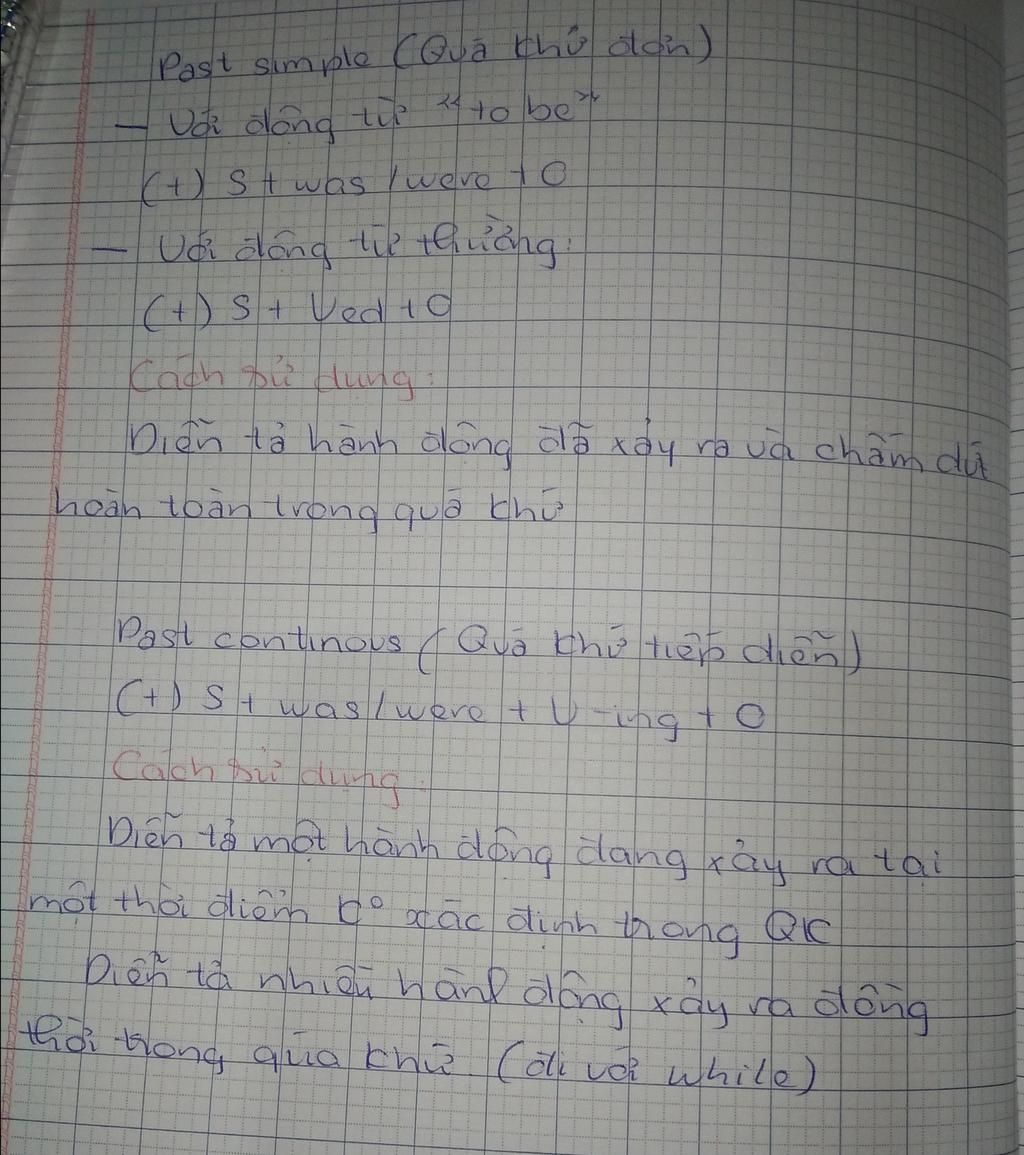 Past simple (Quá khứ đơn)
- Với động từ "to be"
(+) S + was / were + O
- Với động từ thường:
(+) S + Ved + O
Cách sử dụng:
Diễn tả hành động đã xảy ra và chấm dứt
hoàn toàn trong quá khứ
Past continous (Quá khứ tiếp diễn)
(+) S + was / were + V-ing + O
Cách sử dụng:
Diễn tả một hành động đang xảy ra tại
một thời điểm k° xác định trong QK
Diễn tả nhiều hành động xảy ra đồng
thời trong qúa khứ (đi với while)